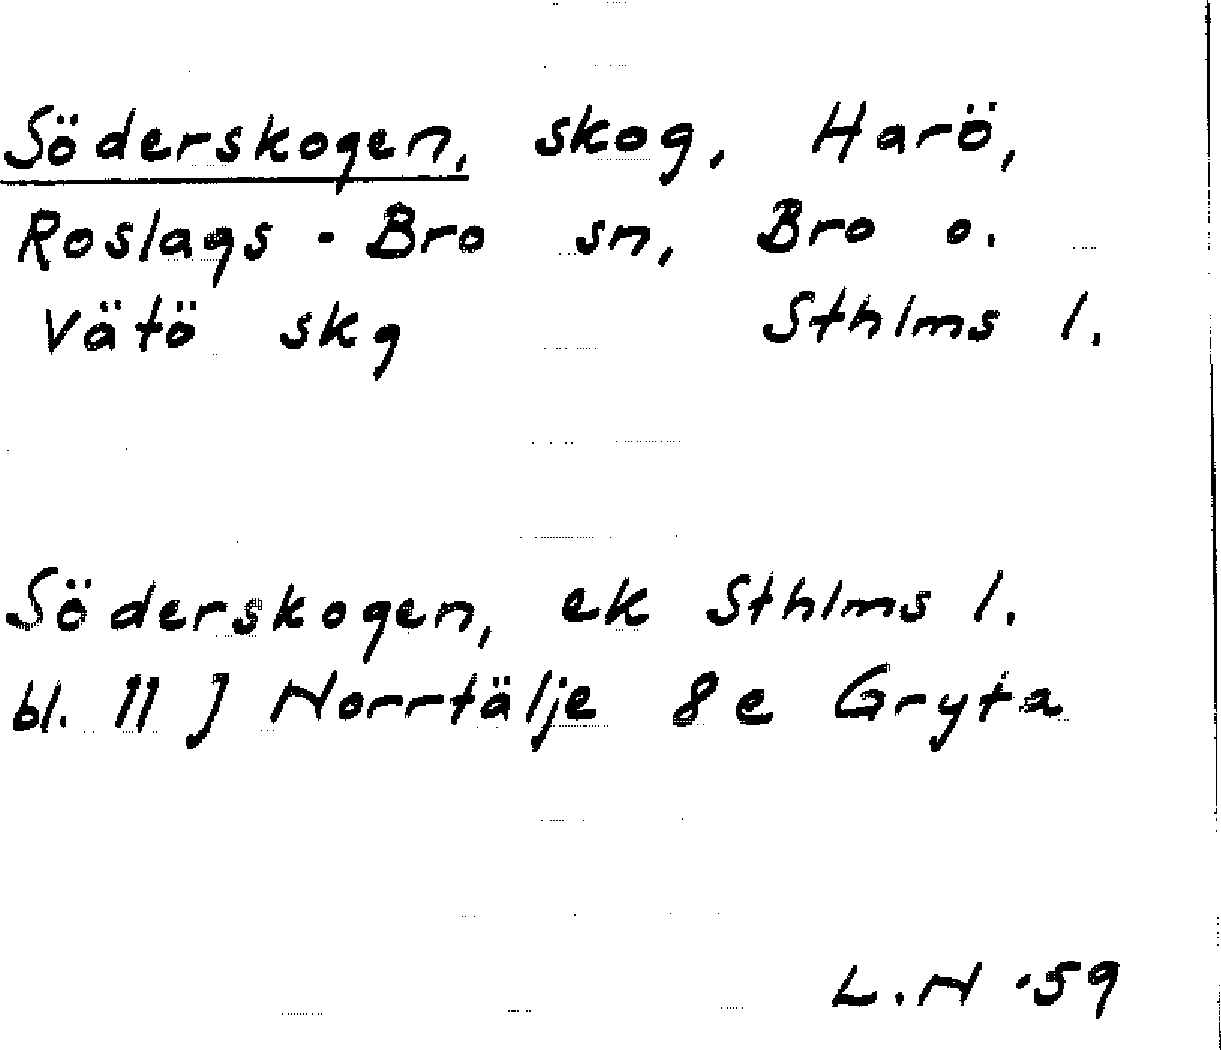 Söderskogen, skog, Harö,
Roslags-Bro sn, Bro o.
Vätö skg Sthlms l.
Söderskogen, ek Sthlms l.
bl. 11 J Norrtälje 8e Gryta
L.N -59